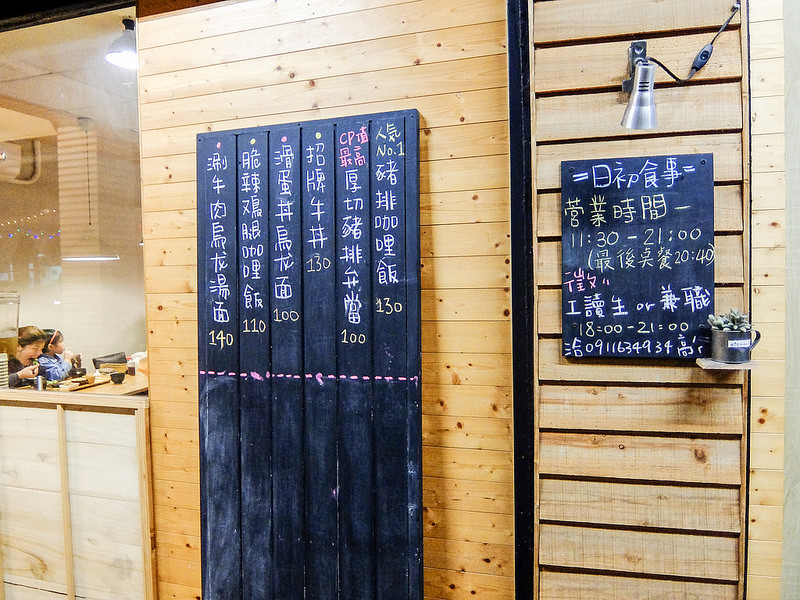 人氣
No.1
豬排咖哩飯 130
CP值
最高
厚切豬排弁當 100
招牌牛丼 130
滑蛋丼烏龙面 100
脆辣鳮腿咖哩飯 110
涮牛肉烏龙湯面 140
=日初食事=
營業時間—
11:30-21:00
(最後桌餐20:40)
徵"
工讀生or兼職
18:00-21:00
洽0911634934高